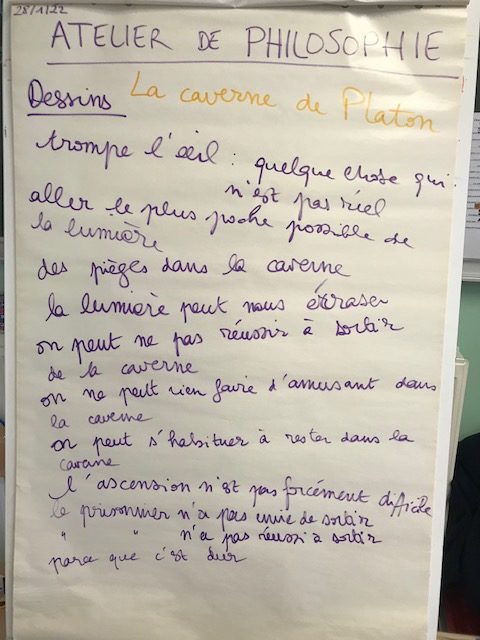 28/1/22
ATELIER DE PHILOSOPHIE
Dessins La caverne de Platon
trompe l'œil : quelque chose qui
n'est pas réel
aller le plus poche possible de
la lumière
des pièges dans la caverne
la lumière peut nous écraser
on peut ne pas réussir à sortir
de la caverne
on ne peut rien faire d'amusant dans
la caverne
on peut s'habituer à rester dans la
caverne
l'ascension n'est pas forcément difficile
le prisonnier n'a pas envie de sortir
" " n'a pas réussi à sortir
parce que c'est dur